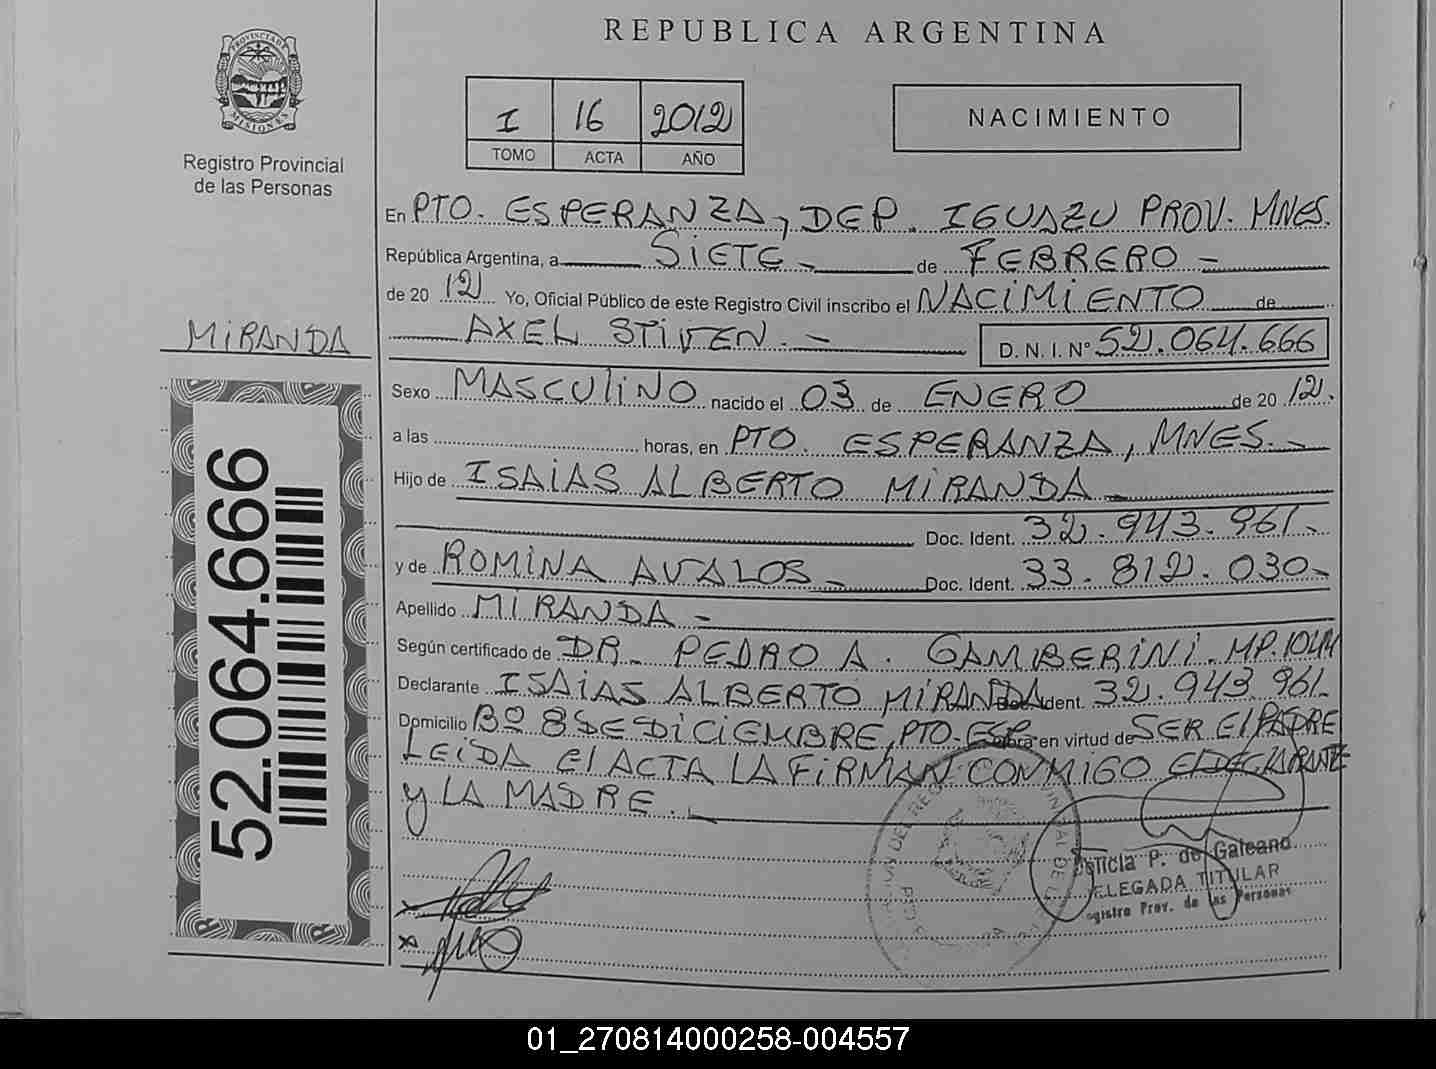 REPUBLICA ARGENTINA
PROVINCIA DE MISIONES
Registro Provincial
de las Personas
I 16 2012
TOMO ACTA AÑO
NACIMIENTO
En PTO. ESPERANZA, DEP. IGUAZU PROV. MNES.
República Argentina, a SIETE de FEBRERO
de 2012 Yo, Oficial Público de este Registro Civil inscribo el NACIMIENTO de
MIRANDA
AXEL STIVEN.- D. N. I. Nº 52.064.666
Sexo MASCULINO nacido el 03 de ENERO de 2012.
a las horas, en PTO. ESPERANZA, MNES.-
Hijo de ISAIAS ALBERTO MIRANDA
Doc. Ident. 32.943.961.-
y de ROMINA AVALOS- Doc. Ident. 33.812.030-
Apellido MIRANDA-
Según certificado de DR. PEDRO A. GAMBERINI. MP.
Declarante ISAIAS ALBERTO MIRANDA Doc. Ident. 32.943.961-
Domicilio Bº 8 DE DICIEMBRE, PTO. ESP. obra en virtud de SER El PADRE
LEIDA El ACTA LA FIRMAN CONMIGO El DECLARANTE
y LA MADRE.
52.064.666
Leticia P. de Galeano
DELEGADA TITULAR
Registro Prov. de las Personas
01_270814000258-004557